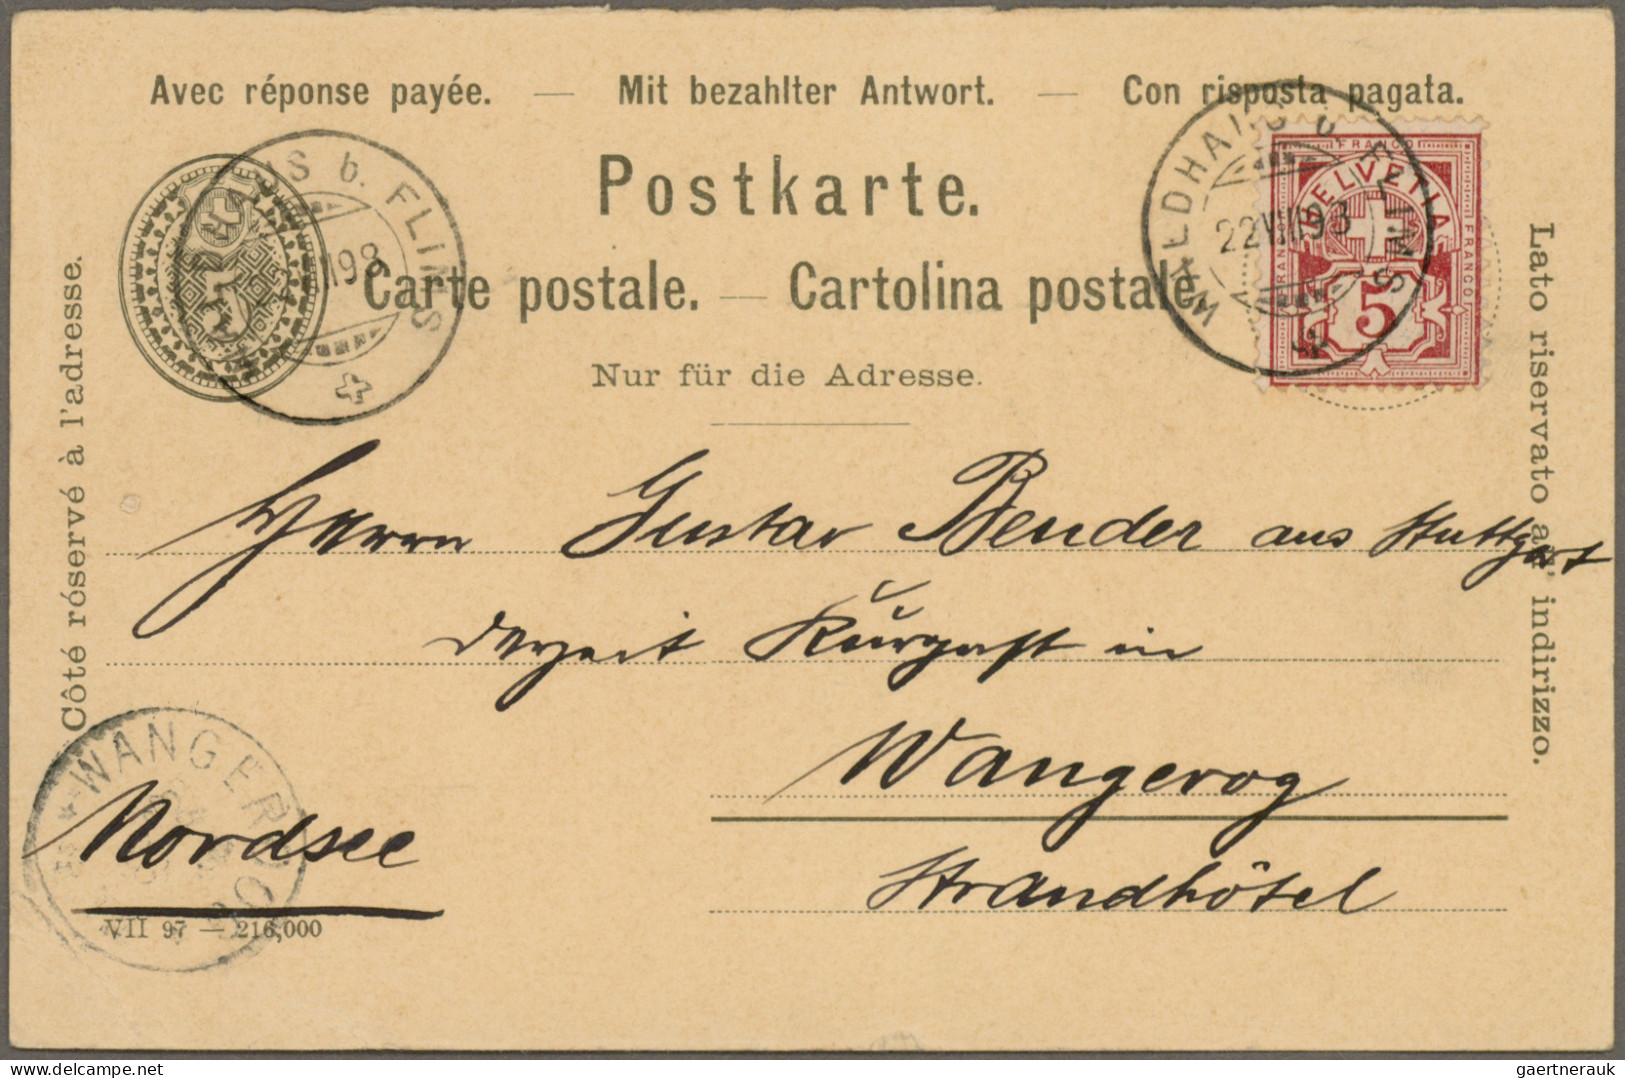 Avec réponse payée. — Mit bezahlter Antwort. — Con risposta pagata.
Postkarte.
Carte postale. — Cartolina postale.
Nur für die Adresse.
Côté réservé à l'adresse.
Lato riservato all' indirizzo.
AUS b. FLIMS
98
5
WALDHAUS b. FLIMS
22 VIII 98
FRANCO
HELVETIA
FRANCO
FRANCO
5
Herrn Gustav Bender aus Stuttgart
derzeit Kurgast in
Wangerog
Strandhôtel
Nordsee
WANGEROOG
VII 97 — 216,000
gaertnerauk